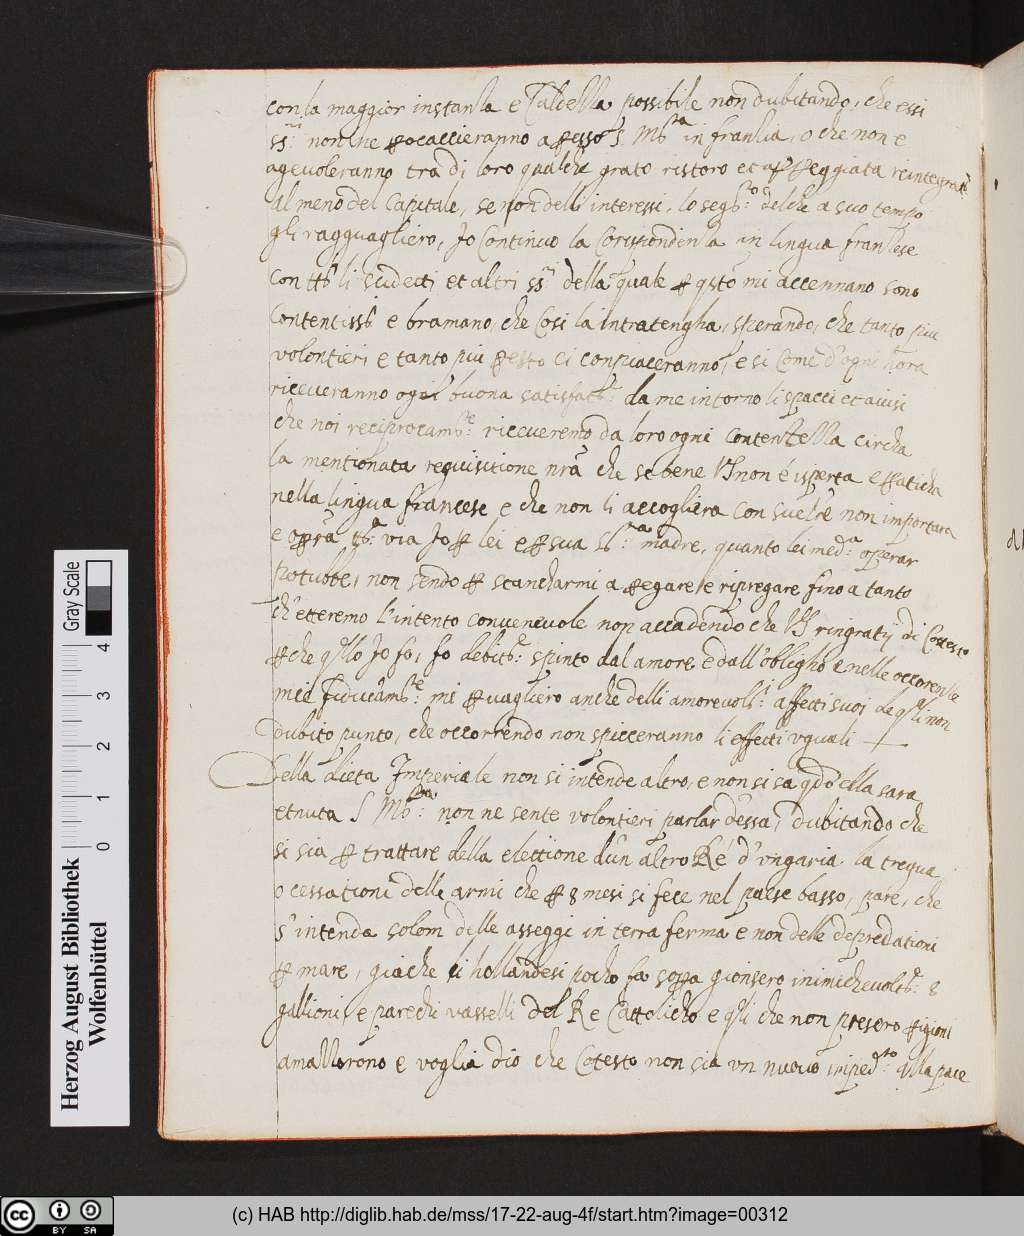 con la maggior instanza e Caldezza possibile non dubitando, che essi
ss.ri non ne procaccieranno appesso S. M.ta in franzia, o che non e
agevoleranno tra di loro qualche grato ristoro et appreggiata reintegrat.
al meno del Capitale, se non delli interessi, lo seg.to delche a suo tempo
gli ragguagliero, Jo Continuo la Corrispondenza in lingua franzese
con tt.i li sudetti et altri ss.ri della quale per q.sto mi accennano sono
Contentiss.i e bramano, che Cosi la intratengha, sperando, che tanto piu
volontieri e tanto piu presto ci conpiaceranno, e si Come d'ogni hora
riceveranno ogni buona satisfat.e da me intorno li spacci et avisi
che noi reciprocam.te riceveremo da loro ogni contentezza circha
la mentionata requisitione nrã che se bene VS non è isperta e praticha
nella lingua francese e che non li accogliera con suelrẽ non importara
e oprã tt.a via Jo per lei e per sua S.ra madre, quanto lei med.a operar
potubbe, non sendo per stancharmi a pregare e ripregare fino a tanto
ch'etteremo l'intento convenevole non accadendo che VS ringratij di Cotesto
perche q.llo Jo fo, fo debit.e spinto dal amore e dall'obligho e nelle occorenze
mie fiducialm.te mi prevagliero anche delli amorevol.i affetti suoi de q.li non
dubito punto, che occorrendo non spicceranno li effetti uguali
Della dieta Imperiale non si intende altro, e non si sa q.do ella sara
etnuta S. M.ta non ne sente volontieri parlar d'essa, dubitando che
si sia per trattare della elettione d'un altro Re d'ungaria. la tregua
o cessationi delle armi che per 8 mesi si fece nel paese basso, pare, che
s'intenda solom delle asseggi in terra ferma e non delle depredationi
per mare, giache li hollandesi pocho fa sopra gionsero inimichevolt.e 8
gallioni, e parechi vasselli del Re Cattolicho e q.li che non presero prigioni
amazzorono e voglia dio che Cotesto non sia un nuovo inped.to alla pace
Herzog August Bibliothek
Wolfenbüttel
Gray Scale
0 1 2 3 4
(c) HAB http://diglib.hab.de/mss/17-22-aug-4f/start.htm?image=00312
cc BY SA